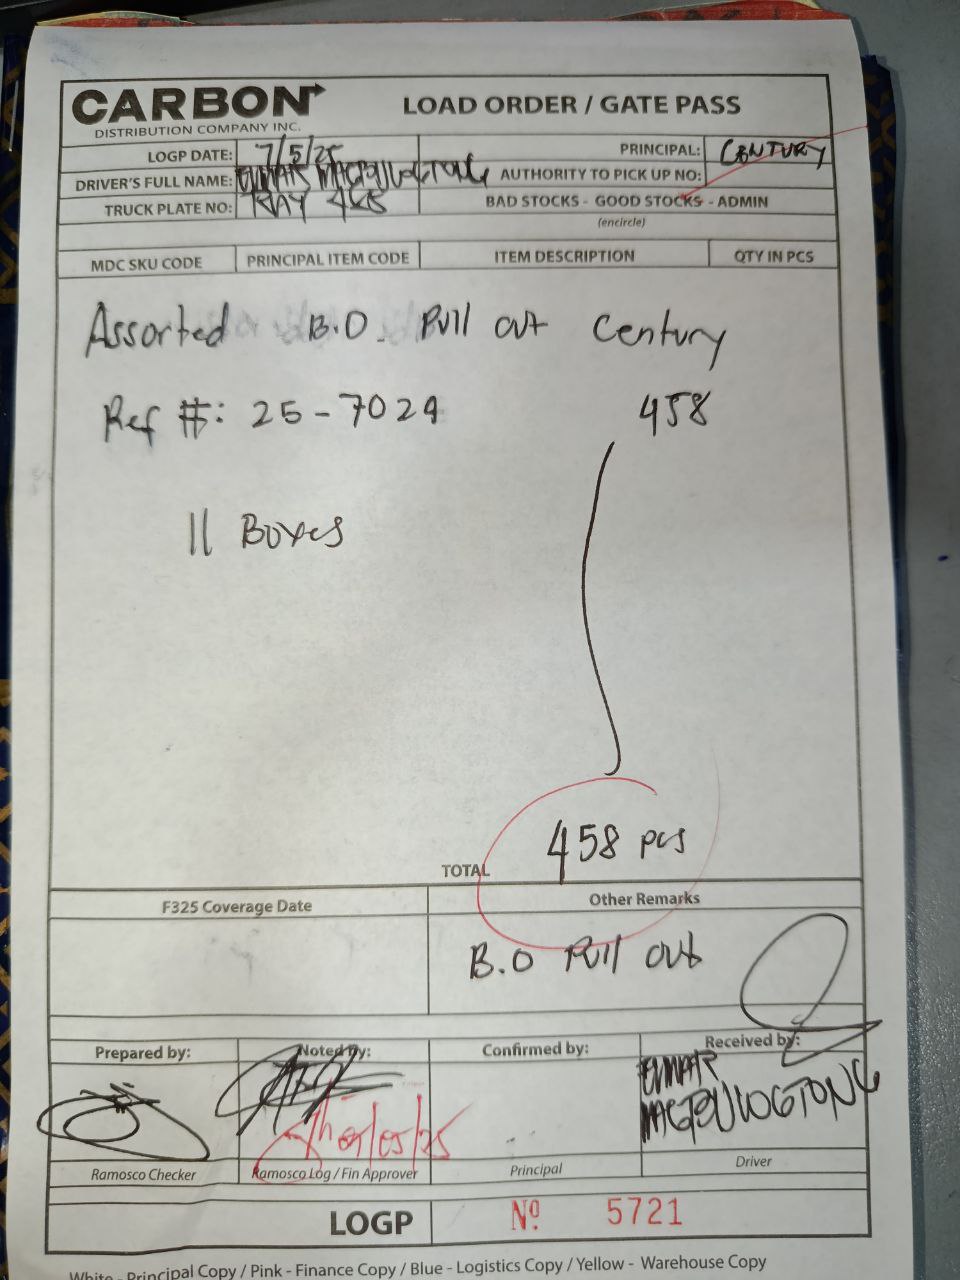 CARBON
DISTRIBUTION COMPANY INC.
LOAD ORDER / GATE PASS
LOGP DATE: 7/5/25
PRINCIPAL: CENTURY
DRIVER'S FULL NAME:
AUTHORITY TO PICK UP NO:
TRUCK PLATE NO:
BAD STOCKS - GOOD STOCKS - ADMIN
(encircle)
MDC SKU CODE PRINCIPAL ITEM CODE ITEM DESCRIPTION QTY IN PCS
Assorted B.O. Pull out Century
Ref #: 25-7024 458
11 Boxes
TOTAL 458 pcs
F325 Coverage Date Other Remarks
B.O Pull out
Prepared by: Noted by: Confirmed by: Received by:
05/25
Ramosco Checker Ramosco Log / Fin Approver Principal Driver
LOGP Nº 5721
White - Principal Copy / Pink - Finance Copy / Blue - Logistics Copy / Yellow - Warehouse Copy